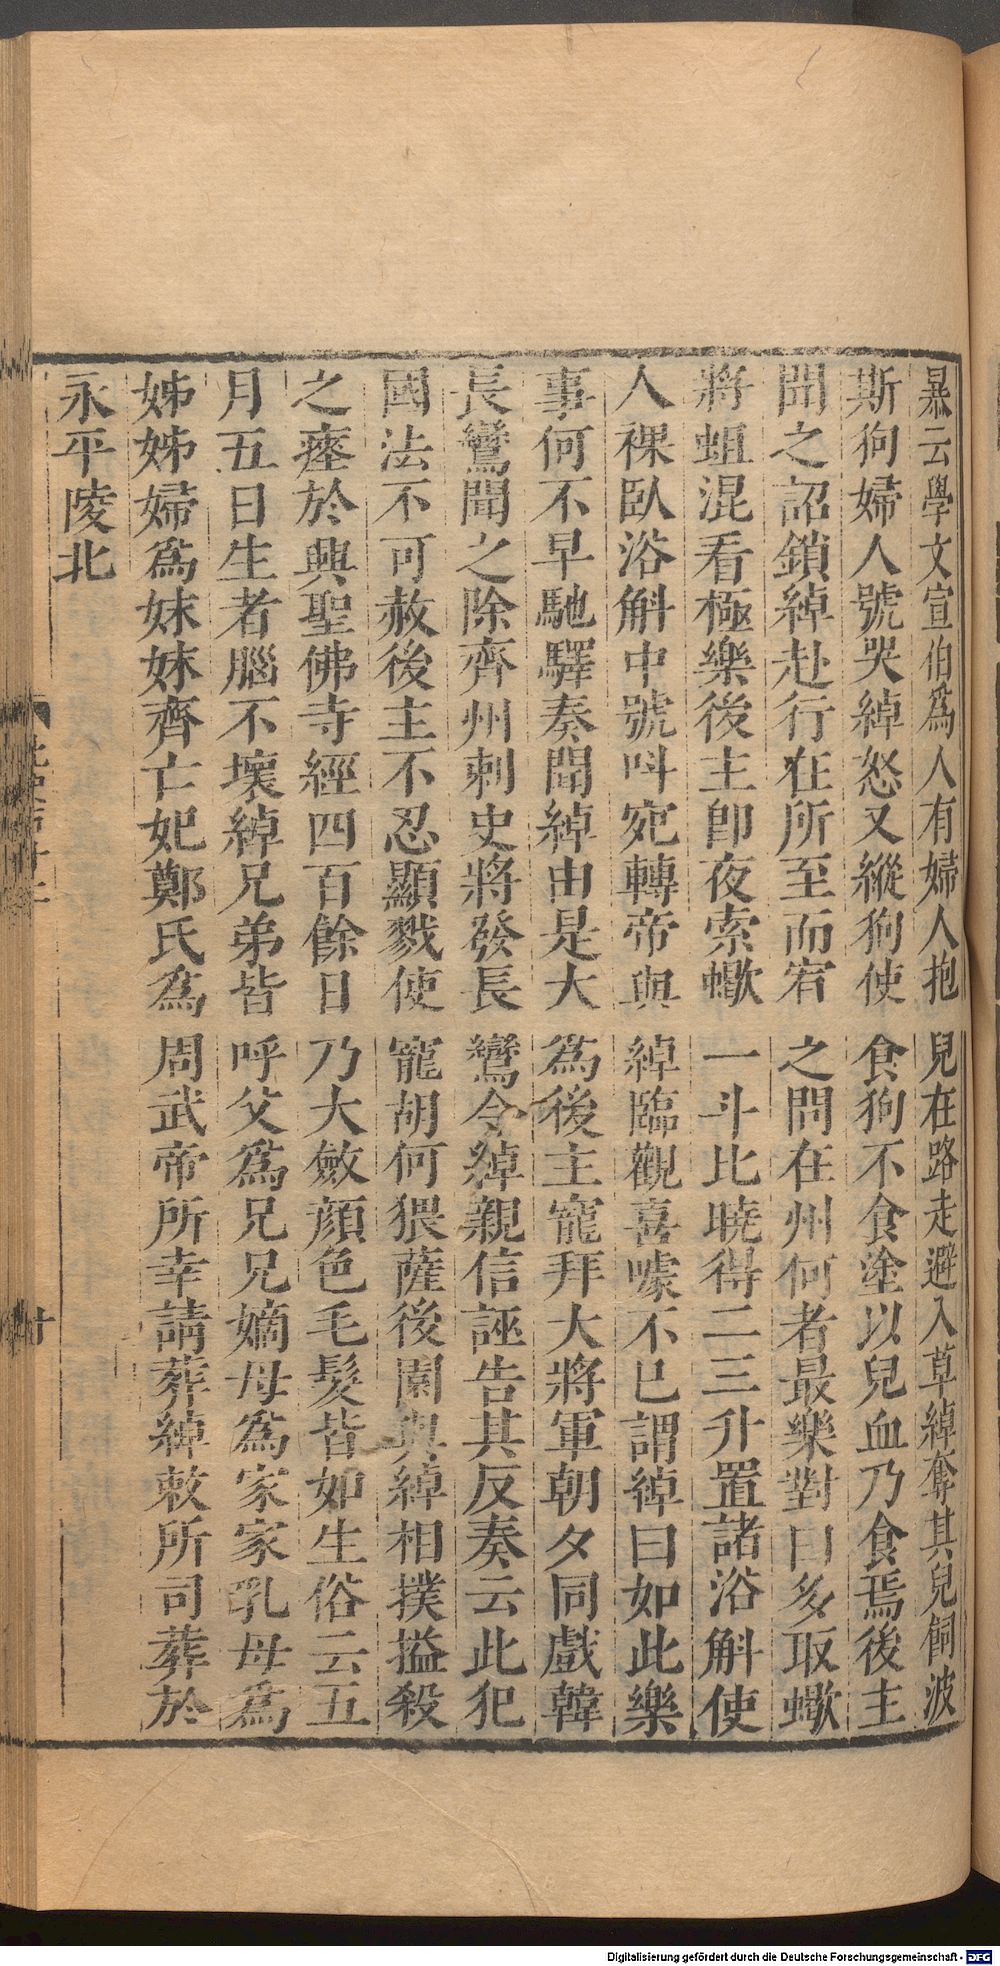 暴云學文宣伯為人有婦人抱兒在路走避入草綽奪其兒飼波
斯狗婦人號哭綽怒又縱狗使食狗不食塗以兒血乃食焉後主
聞之詔鎖綽赴行在所至而宥之問在州何者最樂對曰多取蠍
將蛆混看極樂後主即夜索蠍一斗比曉得二三升置諸浴斛使
人裸臥浴斛中號呌宛轉帝與綽臨觀喜噱不已謂綽曰如此樂
事何不早馳驛奏聞綽由是大為後主寵拜大將軍朝夕同戲韓
長鸞聞之除齊州刺史將發長鸞令綽親信誣告其反奏云此犯
國法不可赦後主不忍顯戮使寵胡何猥薩後園與綽相撲搤殺
之瘞於興聖佛寺經四百餘日乃大斂顏色毛髮皆如生俗云五
月五日生者腦不壞綽兄弟皆呼父為兄兄嫡母為家家乳母為
姊姊婦為妹妹齊亡妃鄭氏為周武帝所幸請葬綽敕所司葬於
永平陵北
Digitalisierung gefördert durch die Deutsche Forschungsgemeinschaft - DFG